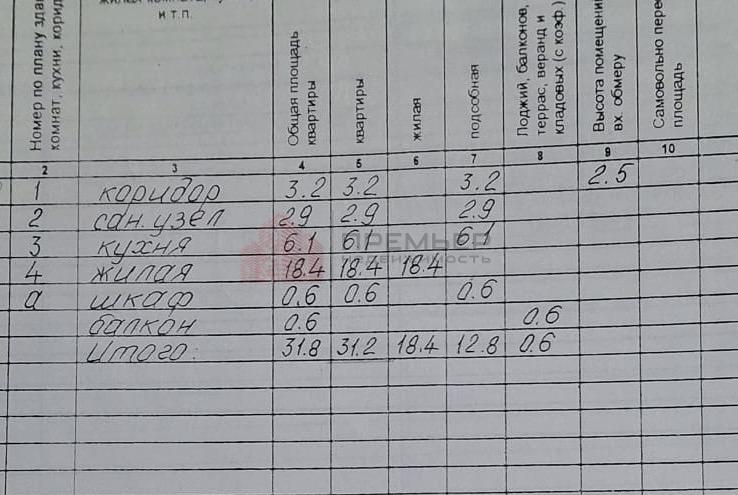 и т.п.
Номер по плану здан
комнат, кухни, корид
Общая площадь
квартиры
квартиры
жилая
подсобная
Лоджий, балконов,
террас, веранд и
кладовых (с коэф.)
Высота помещени
вх. обмеру
Самовольно пере
площадь
2 3 4 5 6 7 8 9 10
1 коридор 3.2 3.2 3.2 2.5
2 сан. узел 2.9 2.9 2.9
3 кухня 6.1 6.1 6.1
4 жилая 18.4 18.4 18.4
а шкаф 0.6 0.6 0.6
балкон 0.6 0.6
Итого: 31.8 31.2 18.4 12.8 0.6
ПРЕМЬЕР
НЕДВИЖИМОСТЬ